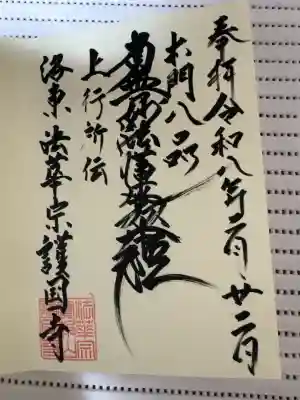 奉拝令和八年二月廿二日
本門八品
南無妙法蓮華経
上行所伝
洛東法華宗護国寺